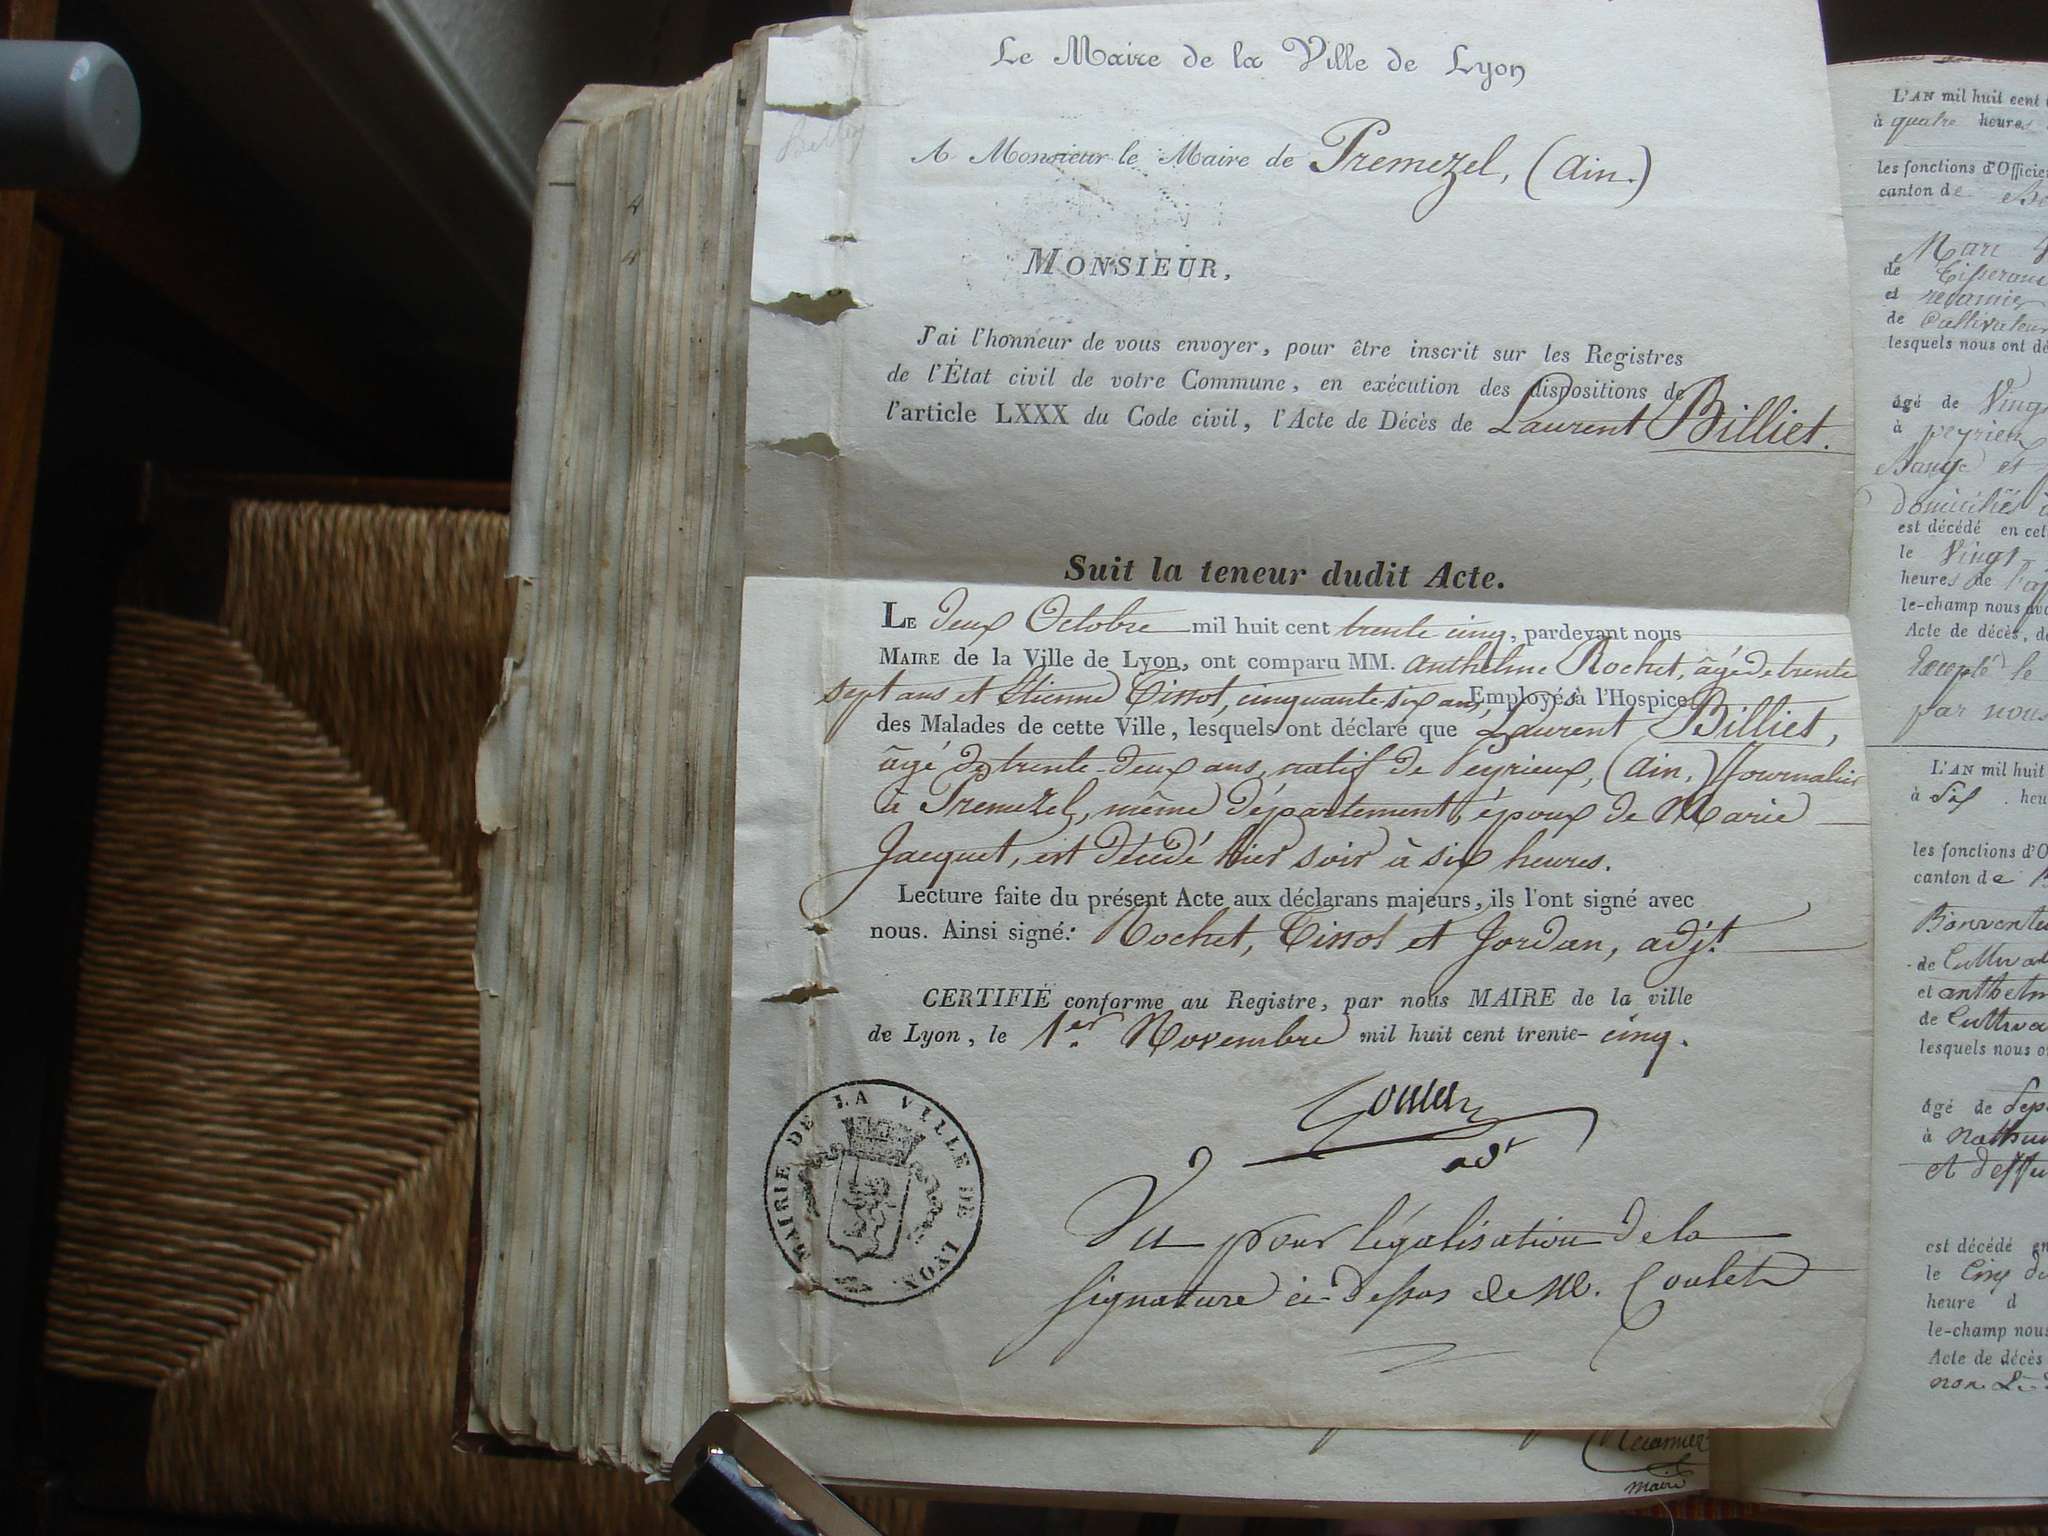 Le Maire de la Ville de Lyon
A Monsieur le Maire de Premezel, (ain.)
MONSIEUR,
J'ai l'honneur de vous envoyer, pour être inscrit sur les Registres
de l'État civil de votre Commune, en exécution des dispositions de
l'article LXXX du Code civil, l'Acte de Décès de Laurent Billiet.
Suit la teneur dudit Acte.
LE deux Octobre mil huit cent trente cinq, pardevant nous
MAIRE de la Ville de Lyon, ont comparu MM. anthelme Rochet, âgé de trente
sept ans et Etienne Tissot, cinquante-six ans, Employés à l'Hospice
des Malades de cette Ville, lesquels ont déclaré que Laurent Billiet,
âgé de trente-deux ans, natif de Peyrieux, (ain,) Journalier
à Premezel, même département, époux de Marie
Jacquet, est décédé hier soir à six heures.
Lecture faite du présent Acte aux déclarans majeurs, ils l'ont signé avec
nous. Ainsi signé: Rochet, Tissot et Jordan, adjt.
CERTIFIÉ conforme au Registre, par nous MAIRE de la ville
de Lyon, le 1er. Novembre mil huit cent trente- cinq.
MAIRIE DE LA VILLE DE LYON
Vu pour légalisation de la
signature ci-dessus de M. Coulet
maire
L'AN mil huit cent
à quatre heures
les fonctions d'Officier
canton de
Marc
de Tisserand
et
de Cultivateur
lesquels nous ont dé
âgé de Vingt
à peyrieu
et
domiciliés à
est décédé en cet
le Vingt-
heures de
le-champ nous avo
Acte de décès, de
excepté le
par nous
L'AN mil huit
à dix heu
les fonctions d'O
canton de
de Cultivat
et anthelm
de Cultiva
lesquels nous o
âgé de
à
et
est décédé en
le Cinq du
heure d
le-champ nous
Acte de décès
non